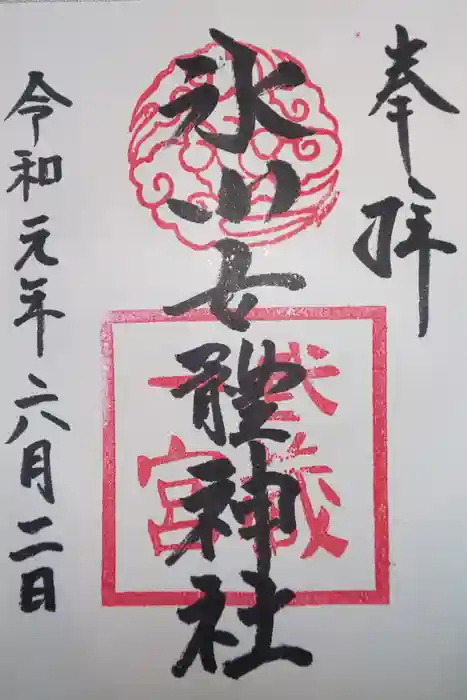 奉拝
氷川女體神社
武蔵
一宮
令和元年六月二日